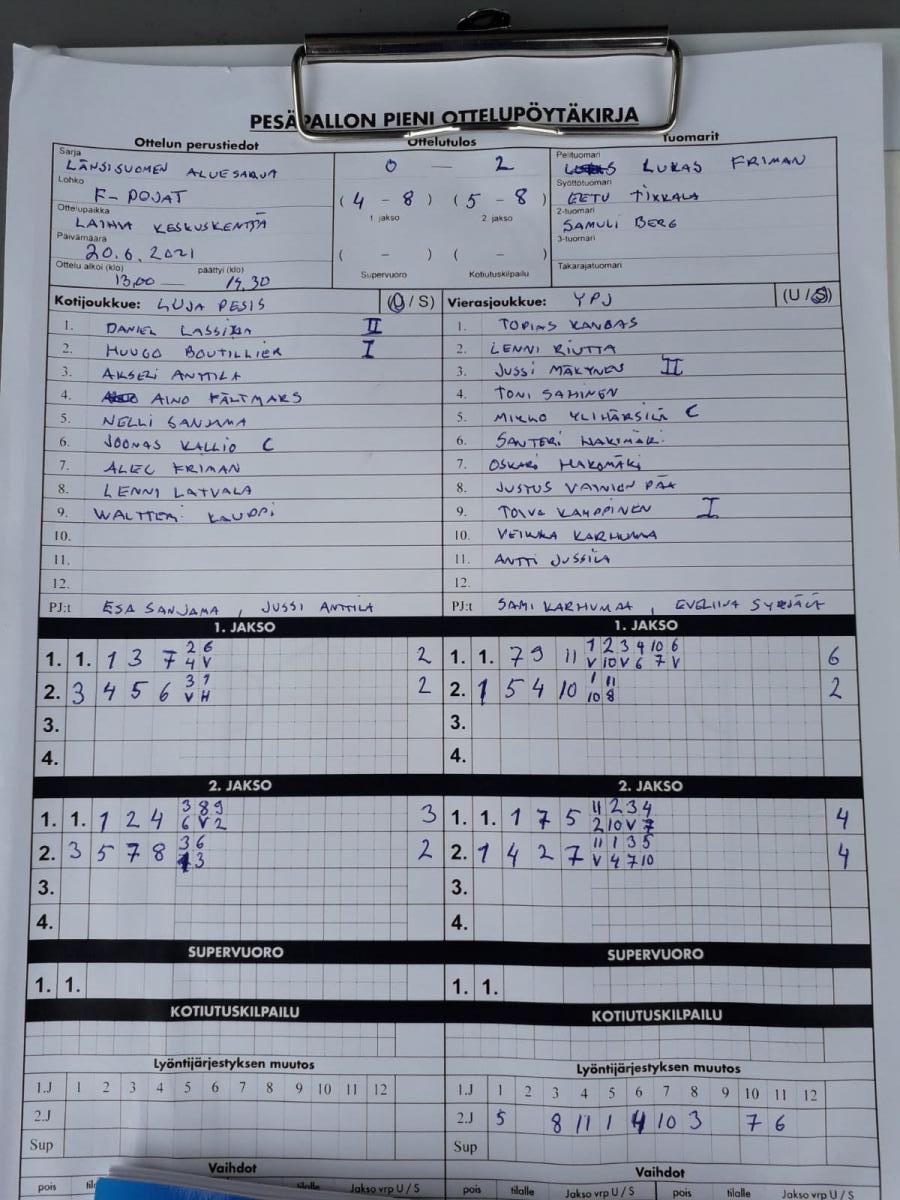 PESÄPALLON PIENI OTTELUPÖYTÄKIRJA
Ottelun perustiedot Ottelutulos Tuomarit
Sarja
LÄNSISUOMEN ALUESARJA
Lohko
F-POJAT
Ottelupaikka
LAIHIA KESKUSKENTTÄ
Päivämäärä
20.6.2021
Ottelu alkoi (klo) päättyi (klo)
13,00 — 14,30
0 — 2
( 4 - 8 ) ( 5 - 8 )
1. jakso 2. jakso
( - ) ( - )
Supervuoro Kotiutuskilpailu
Pelituomari
LUKAS FRIMAN
Syöttötuomari
EETU TIKKALA
2-tuomari
SAMULI BERG
3-tuomari
Takarajatuomari
Kotijoukkue: LUJA PESIS (U / S)
1. DANIEL LASSILA II
2. HUUGO BOUTILLIER I
3. AKSELI ANTTILA
4. AINO FÄLTMARS
5. NELLI SANJAMA
6. JOONAS KALLIO C
7. ALEC FRIMAN
8. LENNI LATVALA
9. WALTTERI KAUPPI
10.
11.
12.
PJ:t ESA SANJAMA, JUSSI ANTTILA
Vierasjoukkue: YPJ (U / S)
1. TOPIAS KANGAS
2. LENNI RIUTTA
3. JUSSI MÄKYNEN II
4. TONI SAMINEN
5. MIKKO YLIHÄRSILÄ C
6. SANTERI HAKOMÄKI
7. OSKARI HAKOMÄKI
8. JUSTUS VAINION PÄÄ
9. TOIVO KAMPPINEN I
10. VEIKKA KARHUMAA
11. ANTTI JUSSILA
12.
PJ:t SAMI KARHUMAA, EVELIINA SYRJÄLÄ
1. JAKSO
1. 1. 1 3 7 2 6 2
4 V
2. 3 4 5 6 3 7 2
V H
3.
4.
1. JAKSO
1. 1. 7 9 11 1 2 3 4 10 6 6
V 10 V 6 7 V
2. 1 5 4 10 1 11 2
10 8
3.
4.
2. JAKSO
1. 1. 1 2 4 3 8 9 3
6 V 2
2. 3 5 7 8 3 6 2
3
3.
4.
2. JAKSO
1. 1. 1 7 5 11 2 3 4 4
2 10 V 7
2. 1 4 2 7 11 1 3 5 4
V 4 7 10
3.
4.
SUPERVUORO
1. 1.
SUPERVUORO
1. 1.
KOTIUTUSKILPAILU
KOTIUTUSKILPAILU
Lyöntijärjestyksen muutos
1.J 1 2 3 4 5 6 7 8 9 10 11 12
2.J
Sup
Lyöntijärjestyksen muutos
1.J 1 2 3 4 5 6 7 8 9 10 11 12
2.J 5 8 11 1 4 10 3 7 6
Sup
Vaihdot
pois tilalle Jakso vrp U / S
Vaihdot
pois tilalle Jakso vrp U / S pois tilalle Jakso vrp U / S